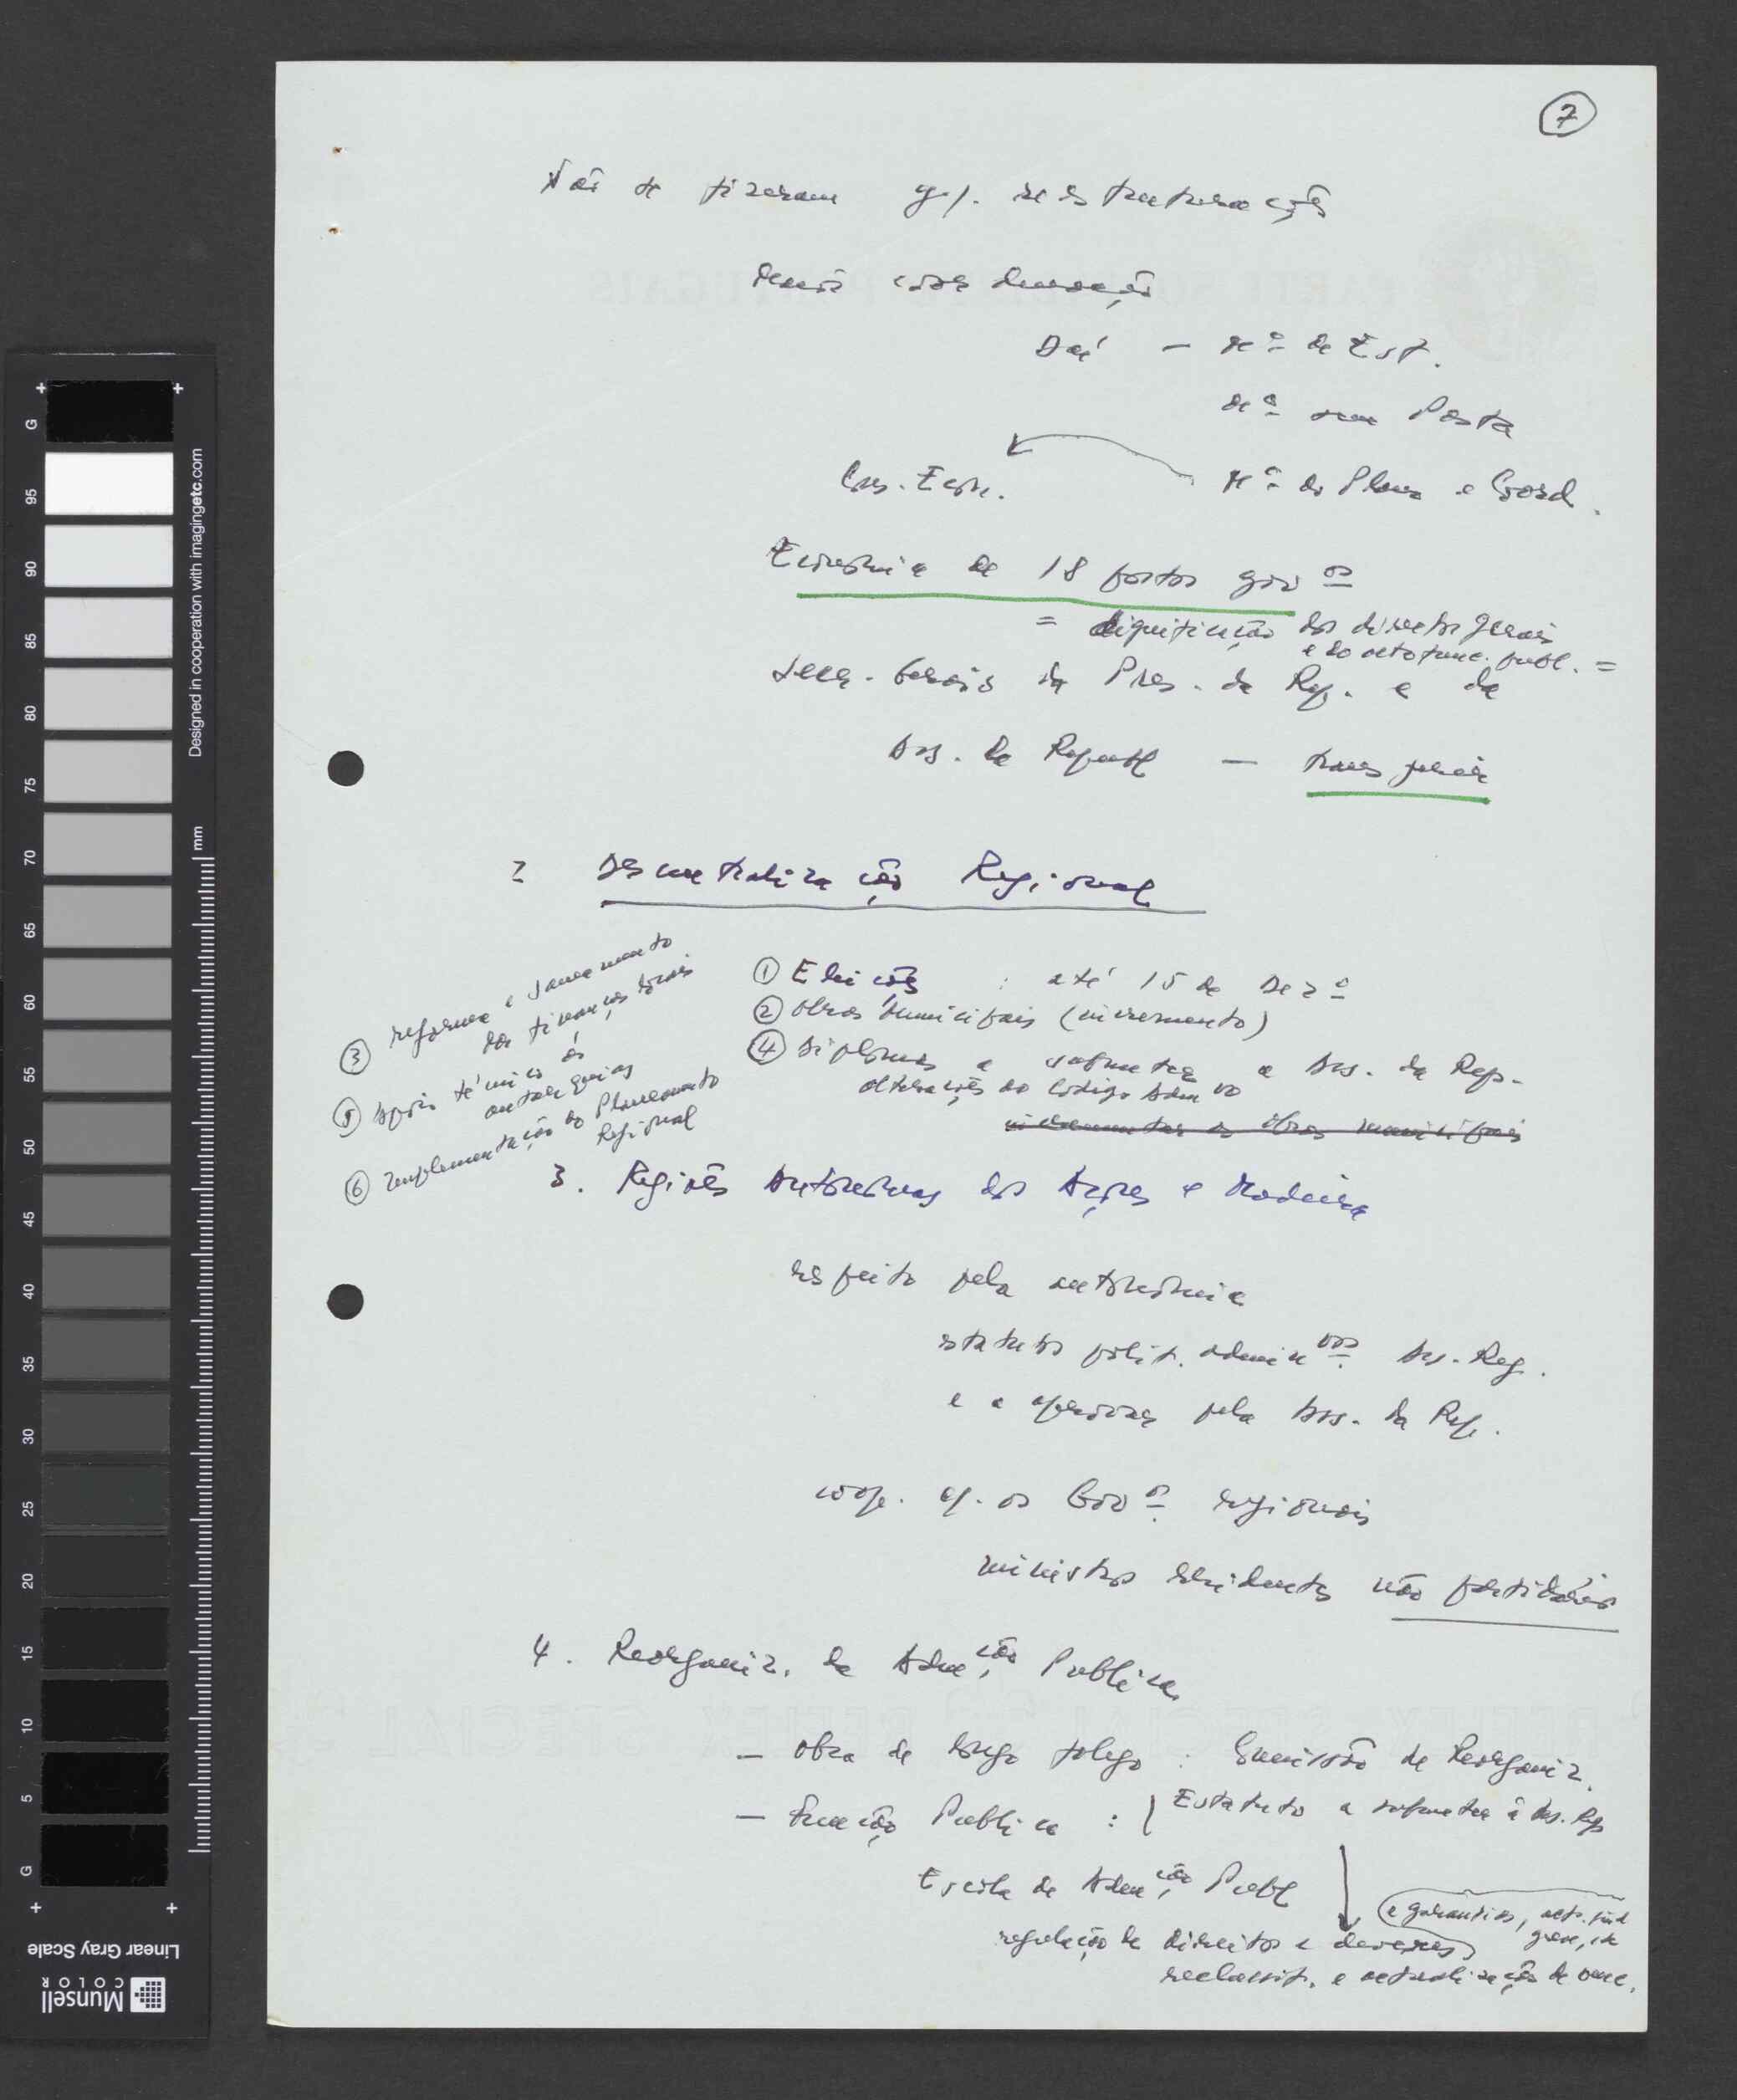 7
Não se fizeram gr/. reestruturações
Maior coordenação
Daí — Mº de Est.
Mº sem Pasta
Cons. Econ. Mº do Plano e Coord.
Economia de 18 postos govos
= dignificação dos directores gerais
e do alto func. publ. =
Secr. Gerais da Pres. da Rep. e da
Ass. da Republ —
2 Descentralização Regional
① Eleições : até 15 de Dezº
② obras municipais (incremento)
③ reforma e saneamento
das finanças locais
④ Diplomas a submeter a Ass. da Rep.
alterações ao Código Admvo
⑤ Apoio técnico às
autarquias
⑥ Implementação do Planeamento
Regional
incrementar as obras municipais
3. Regiões Autónomas dos Açores e Madeira
respeito pela autonomia
estatutos polit. adminvos Ass. Reg.
e a aprovar pela Ass. da Rep.
coop. c/. os Govos regionais
ministros residentes não partidários
4. Reorganiz. da Admção Publica
— obra de longo folego : Comissão de Reorganiz.
— Função Publica : Estatuto a submeter à Ass. Rep
Escola de Admção Publ
(e garantias, act. sind
greve, etc
regulação de direitos e deveres
reclassif. e actualização de venc.